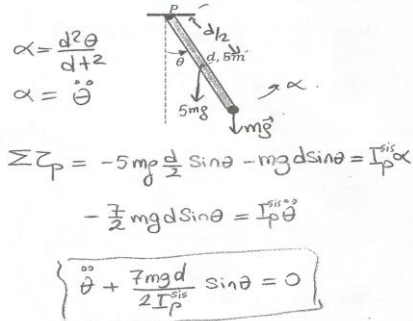 P
d/2
α = d²θ/dt²
θ
d, 5m
α = θ̈
5mg
α
mg⃗
Στ_P = -5mg d/2 Sinθ - mgdsinθ = I_P^sis α
- 7/2 mgdSinθ = I_P^sis θ̈
θ̈ + 7mgd/2I_P^sis sinθ = 0